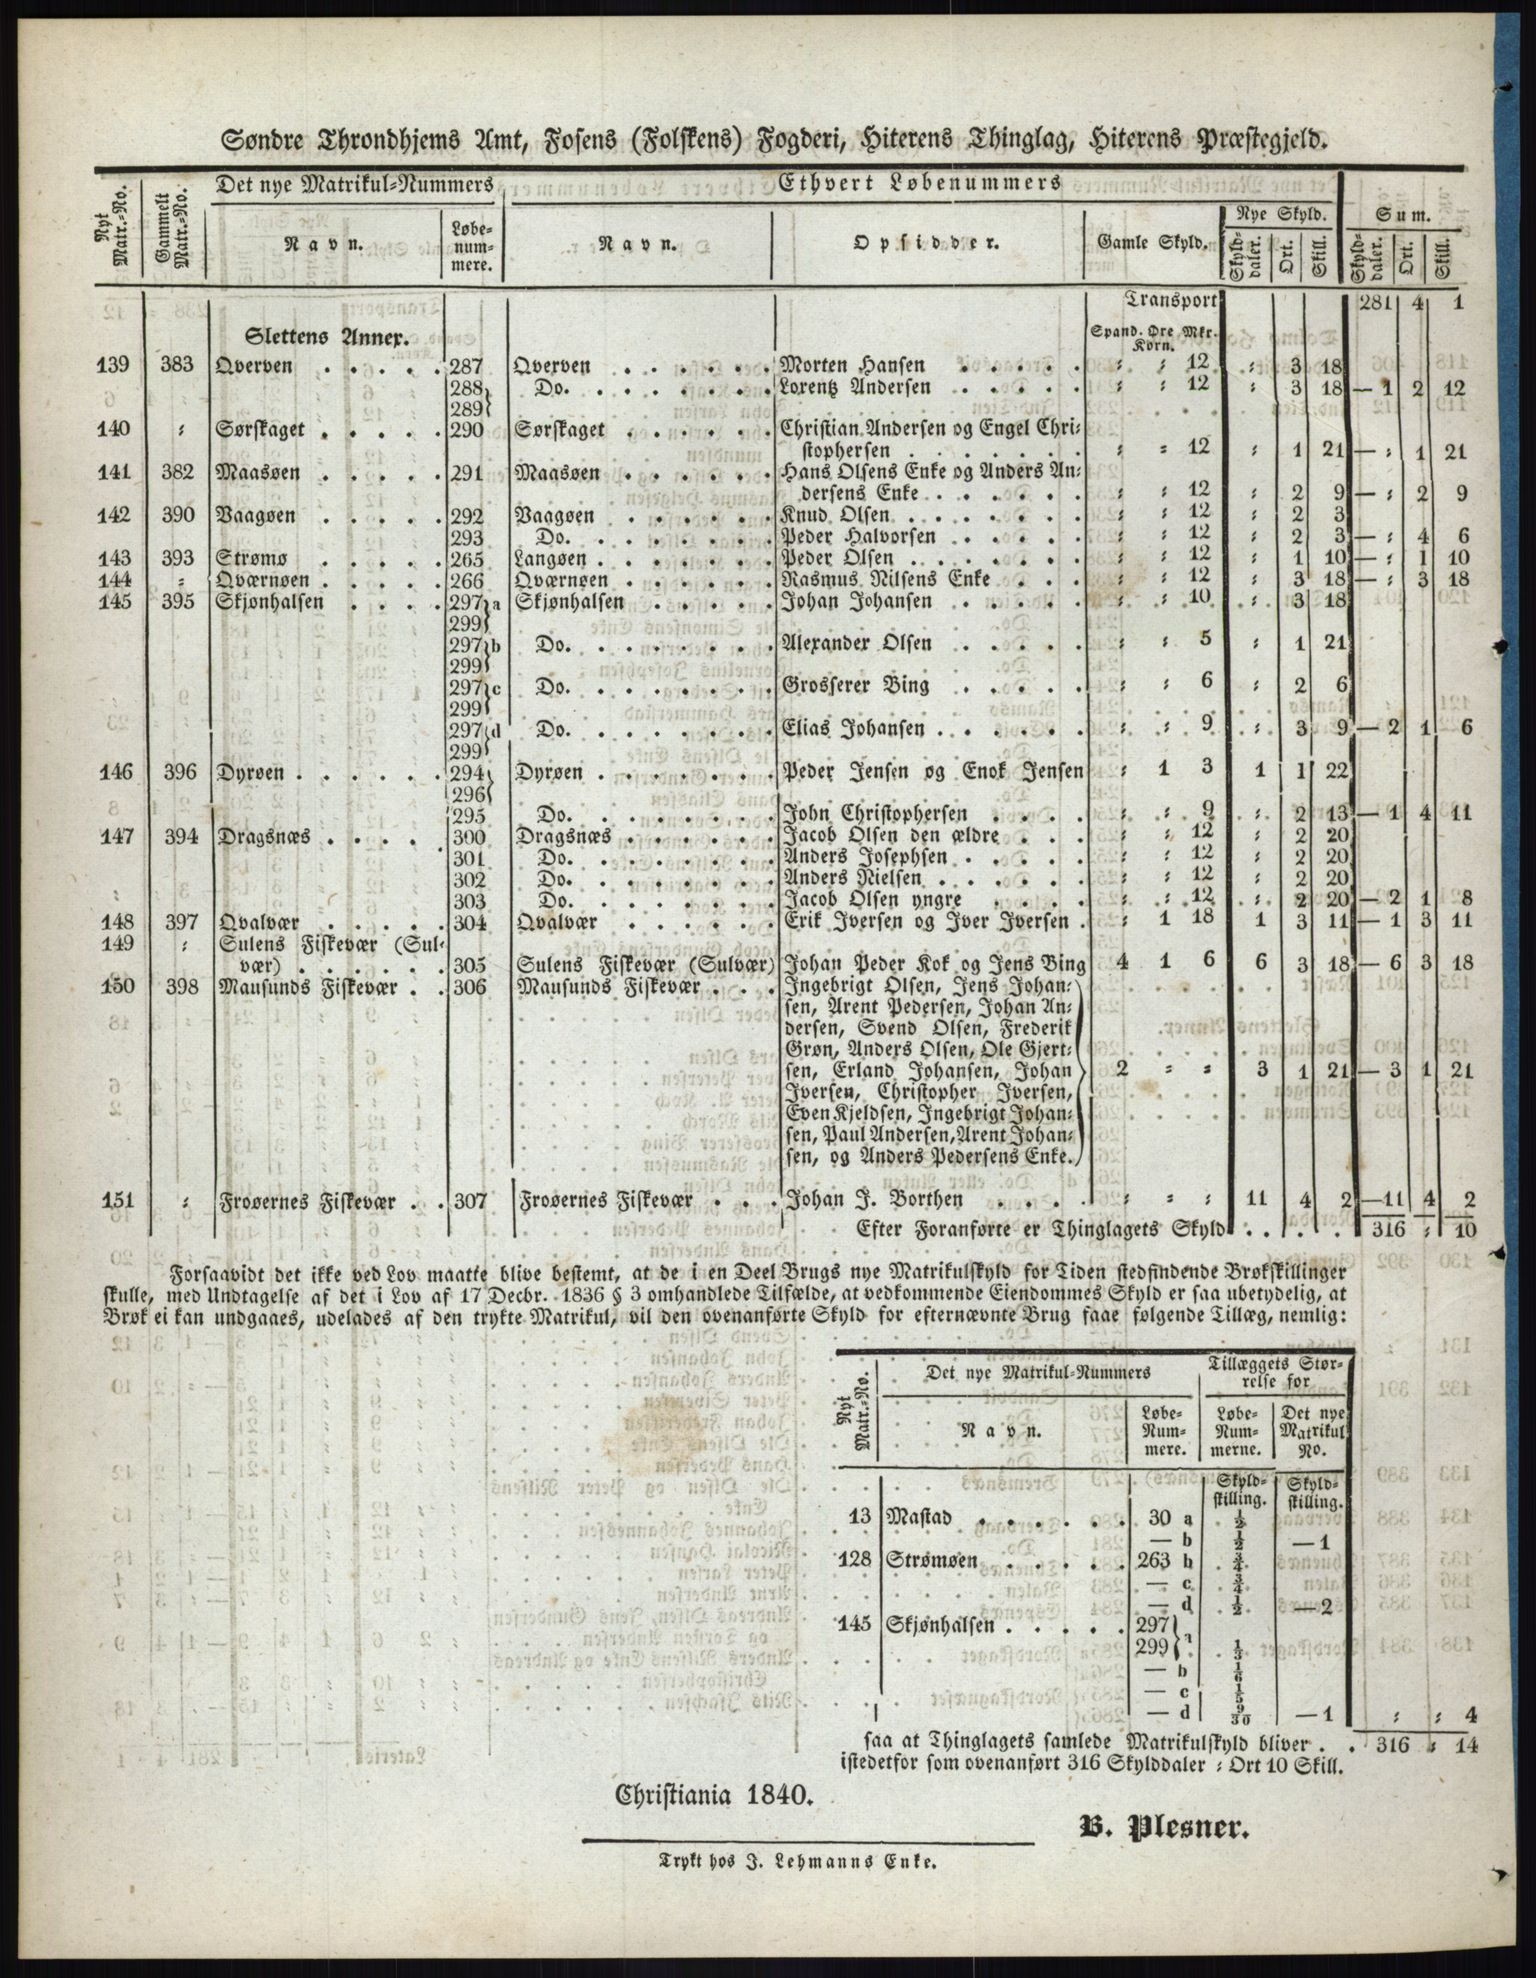 Søndre Throndhjems Amt, Fosens (Folskens) Fogderi, Hiterens Thinglag, Hiterens Præstegjeld.
Nyt Matr.-No. Gammelt Matr.-No. Det nye Matrikul-Nummers Ethvert Løbenummers
Navn. Løbe-num-mere. Navn. Opsidder. Gamle Skyld. Nye Skyld. Sum.
Skyld-daler. Ort. Skill. Skyld-daler. Ort. Skill.
Transport 281 4 1
Slettens Annex. Spand. Øre Mkr. Korn.
139 383 Qverven . . . . . 287 Qverven . . . . . . Morten Hansen . . . . . : : 12 : 3 18
288 Do. . . . . . . . Lorentz Andersen . . . . . : : 12 : 3 18 — 1 2 12
289
140 : Sørskaget . . . . . 290 Sørskaget . . . . . . Christian Andersen og Engel Chri-
stophersen . . . . . . . : : 12 : 1 21 — : 1 21
141 382 Maasøen . . . . . 291 Maasøen . . . . . . Hans Olsens Enke og Anders An-
dersens Enke . . . . . . : : 12 : 2 9 — : 2 9
142 390 Vaagøen . . . . . 292 Vaagøen . . . . . . Knud Olsen . . . . . . . : : 12 : 2 3
293 Do. . . . . . . . Peder Halvorsen . . . . . : : 12 : 2 3 — : 4 6
143 393 Strømø . . . . . 265 Langøen . . . . . . . Peder Olsen . . . . . . . : : 12 : 1 10 — : 1 10
144 : Qværnøen . . . . . 266 Qværnøen . . . . . . Rasmus Nilsens Enke . . . : : 12 : 3 18 — : 3 18
145 395 Skjønhalsen . . . . 297 a Skjønhalsen . . . . . Johan Johansen . . . . . : : 10 : 3 18
299
297 b Do. . . . . . . . Alexander Olsen . . . . . : : 5 : 1 21
299
297 c Do. . . . . . . . Grosserer Bing . . . . . : : 6 : 2 6
299
297 d Do. . . . . . . . Elias Johansen . . . . . . : : 9 : 3 9 — 2 1 6
299
146 396 Dyrøen . . . . . . 294 Dyrøen . . . . . . . Peder Jensen og Enok Jensen : 1 3 1 1 22
296
295 Do. . . . . . . . John Christophersen . . . . : : 9 : 2 13 — 1 4 11
147 394 Dragsnæs . . . . . 300 Dragsnæs . . . . . . Jacob Olsen den ældre . . . : : 12 : 2 20
301 Do. . . . . . . . Anders Josephsen . . . . . : : 12 : 2 20
302 Do. . . . . . . . Anders Nielsen . . . . . . : : 12 : 2 20
303 Do. . . . . . . . Jacob Olsen yngre . . . . : : 12 : 2 20 — 2 1 8
148 397 Qvalvær . . . . . 304 Qvalvær . . . . . . Erik Iversen og Iver Iversen . : 1 18 1 3 11 — 1 3 11
149 : Sulens Fiskevær (Sul-
vær) . . . . . . 305 Sulens Fiskevær (Sulvær) Johan Peder Kok og Jens Bing 4 1 6 6 3 18 — 6 3 18
150 398 Mausunds Fiskevær . . 306 Mausunds Fiskevær . . . Ingebrigt Olsen, Jens Johan-
sen, Arent Pedersen, Johan An-
dersen, Svend Olsen, Frederik
Grøn, Anders Olsen, Ole Gjert-
sen, Erland Johansen, Johan 2 : : 3 1 21 — 3 1 21
Iversen, Christopher Iversen,
Even Kjeldsen, Ingebrigt Johan-
sen, Paul Andersen, Arent Johan-
sen, og Anders Pedersens Enke.
151 : Froøernes Fiskevær . . 307 Froøernes Fiskevær . . . Johan J. Borthen . . . . : : : 11 4 2 — 11 4 2
Efter Foranførte er Thinglagets Skyld . . . . 316 : 10
Forsaavidt det ikke ved Lov maatte blive bestemt, at de i en Deel Brugs nye Matrikulskyld for Tiden stedfindende Brøkskillinger
skulle, med Undtagelse af det i Lov af 17 Decbr. 1836 § 3 omhandlede Tilfælde, at vedkommende Eiendommes Skyld er saa ubetydelig, at
Brøk ei kan undgaaes, udelades af den trykte Matrikul, vil den ovenanførte Skyld for efternævnte Brug faae følgende Tillæg, nemlig:
Nyt Matr.-No. Det nye Matrikul-Nummers Tillæggets Stør-relse for
Navn. Løbe-Num-mere. Løbe-Num-merne. Det nye Matrikul No.
Skyld-skilling. Skyld-skilling.
13 Mastad . . . . . . 30 a ½
— b ½ — 1
128 Strømøen . . . . . 263 b ¾
— c ¾
— d ½ — 2
145 Skjønhalsen . . . . . 297
299 a ⅓
— b ⅙
— c ⅕
— d 9/30 — 1 : : 4
saa at Thinglagets samlede Matrikulskyld bliver . . 316 : 14
istedetfor som ovenanført 316 Skylddaler : Ort 10 Skill.
Christiania 1840.
B. Plesner.
Trykt hos J. Lehmanns Enke.